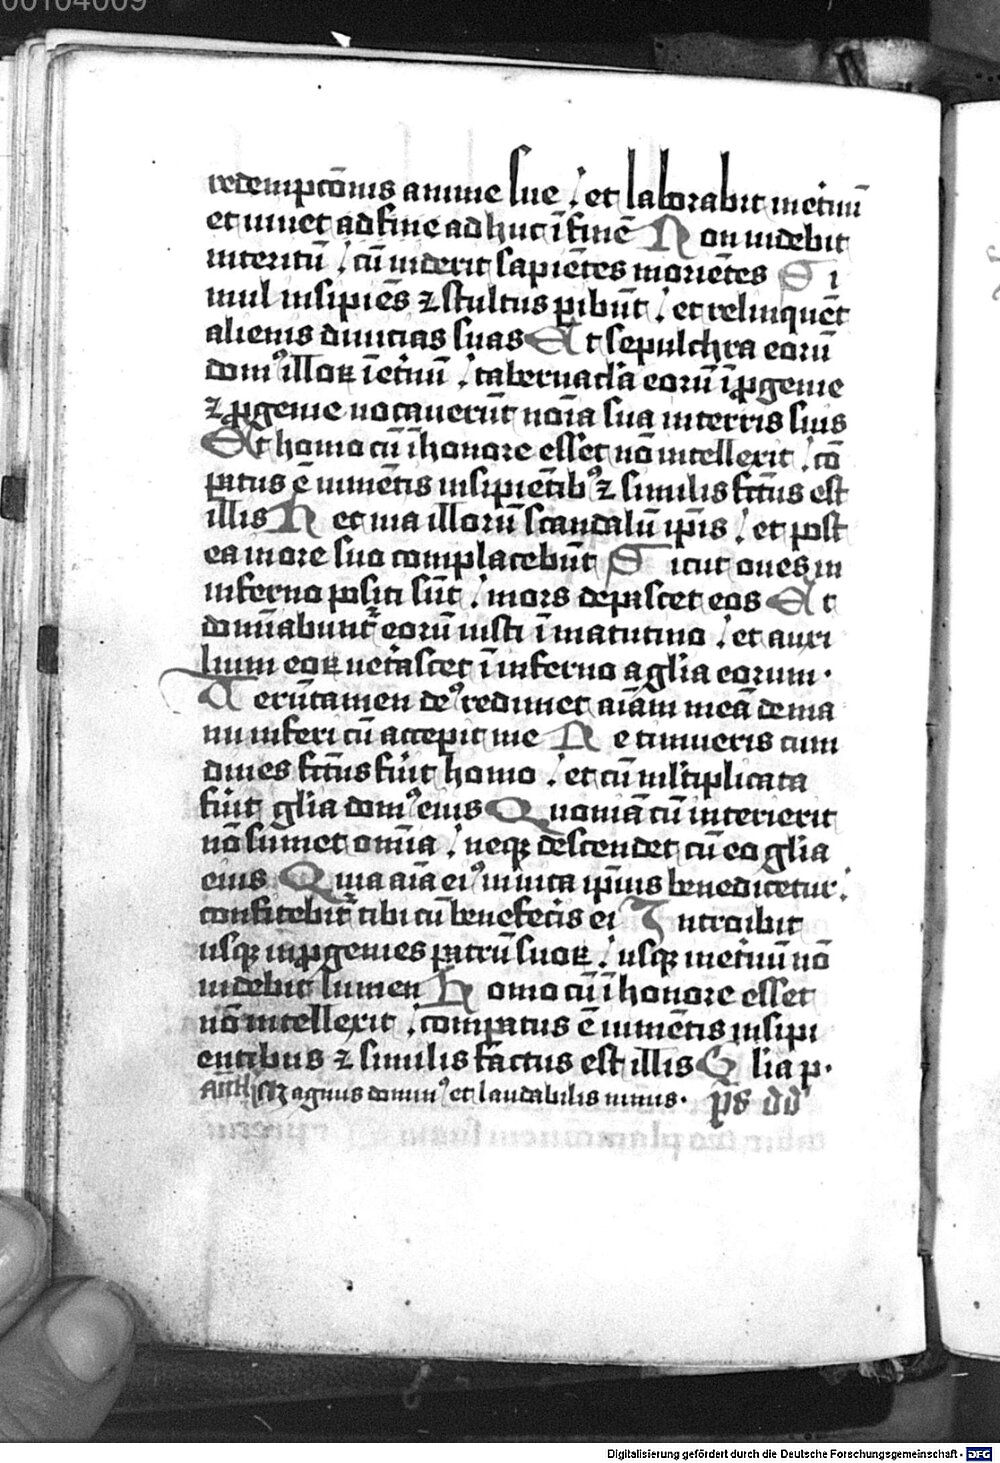 00104009
redemptōnis anime sue ./ et laborabit inet̕nū
et viuet ad finē adhuc ī finē Non videbit
interitū ./ cū viderit sapiētes moriētes Si
mul insipiēs ⁊ stultus ꝑibūt ./ et relinquēt
alienis diuicias suas Et sepulchra eorū
domꝰ illoꝝ īet̕nū ./ tabernacl̕a eorū ī ꝓgenie
⁊ ꝓgenie uocauerūt noīa sua in terris suis
Et homo cū ī honore esset nō intellexit ./ cō
patus ē iumētis insipiētibꝰ ⁊ similis fc̄tus est
illis Hec via illorū scandalū ip̄is ./ et post
ea in ore suo complacebūt Sicut oues in
inferno positi sūt ./ mors depascet eos Et
domīabunt̄ eorū iusti ī matutino ./ et auxi
lium eoꝝ vet̕ascet ī inferno a glīa eorum .
Uerūtamen deꝰ redimet aīam meā de ma
nu inferi cū acceperit me Ne timueris cum
diues fc̄tus fūit homo ./ et cū ml̄tiplicata
fūit glīa domꝰ eius Quoniā cū interierit
nō sumet omīa ./ neqꝫ descendet cū eo glīa
eius Quia aīa eiꝰ in vita ip̄ius benedicetur ./
confitebit̄ tibi cū benefecis ei Introibit
usqꝫ in ꝓgenies patrū suoꝝ ./ usqꝫ inet̕nū nō
videbit lumen Homo cū ī honore esset
nō intellexit ./ comꝑatus ē iumētis insipi
entibus ⁊ similis factus est illis Glīa p.
Magnus dominꝰ et laudabilis nimis . p̄s dd
Digitalisierung gefördert durch die Deutsche Forschungsgemeinschaft - DFG